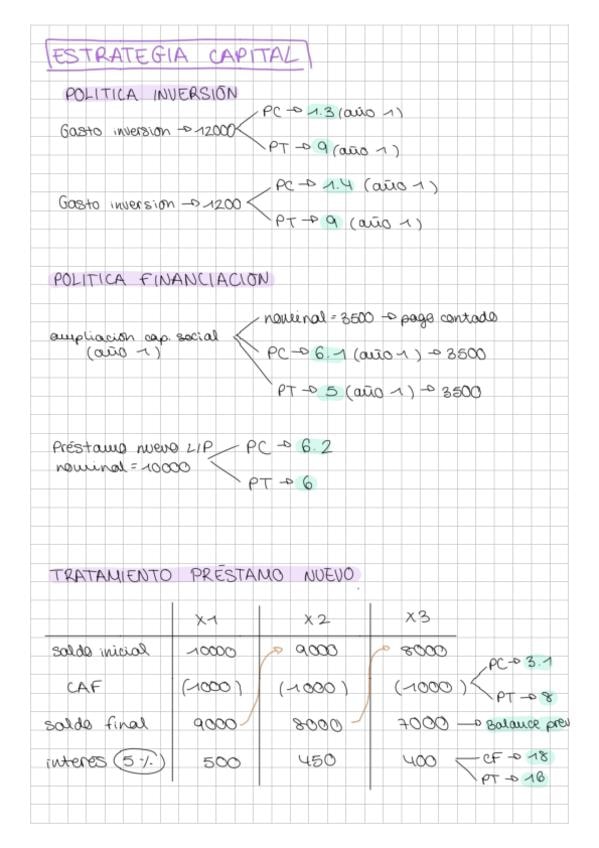 ESTRATEGIA CAPITAL
POLITICA INVERSIÓN
PC → 1.3 (año 1)
Gasto inversion → 12000
PT → 9 (año 1)
PC → 1.4 (año 1)
Gasto inversion → 1200
PT → 9 (año 1)
POLITICA FINANCIACION
nominal = 3500 → pago contado
ampliacion cap. social
(año 1)
PC → 6.1 (año 1) → 3500
PT → 5 (año 1) → 3500
Préstamo nuevo L/P
nominal = 10000
PC → 6.2
PT → 6
TRATAMIENTO PRÉSTAMO NUEVO
X1 X2 X3
saldo inicial 10000 9000 8000
CAF (1000) (1000) (1000)
PC → 3.1
PT → 8
saldo final 9000 8000 7000 → Balance prev
interes 5% 500 450 400
CF → 18
PT → 16